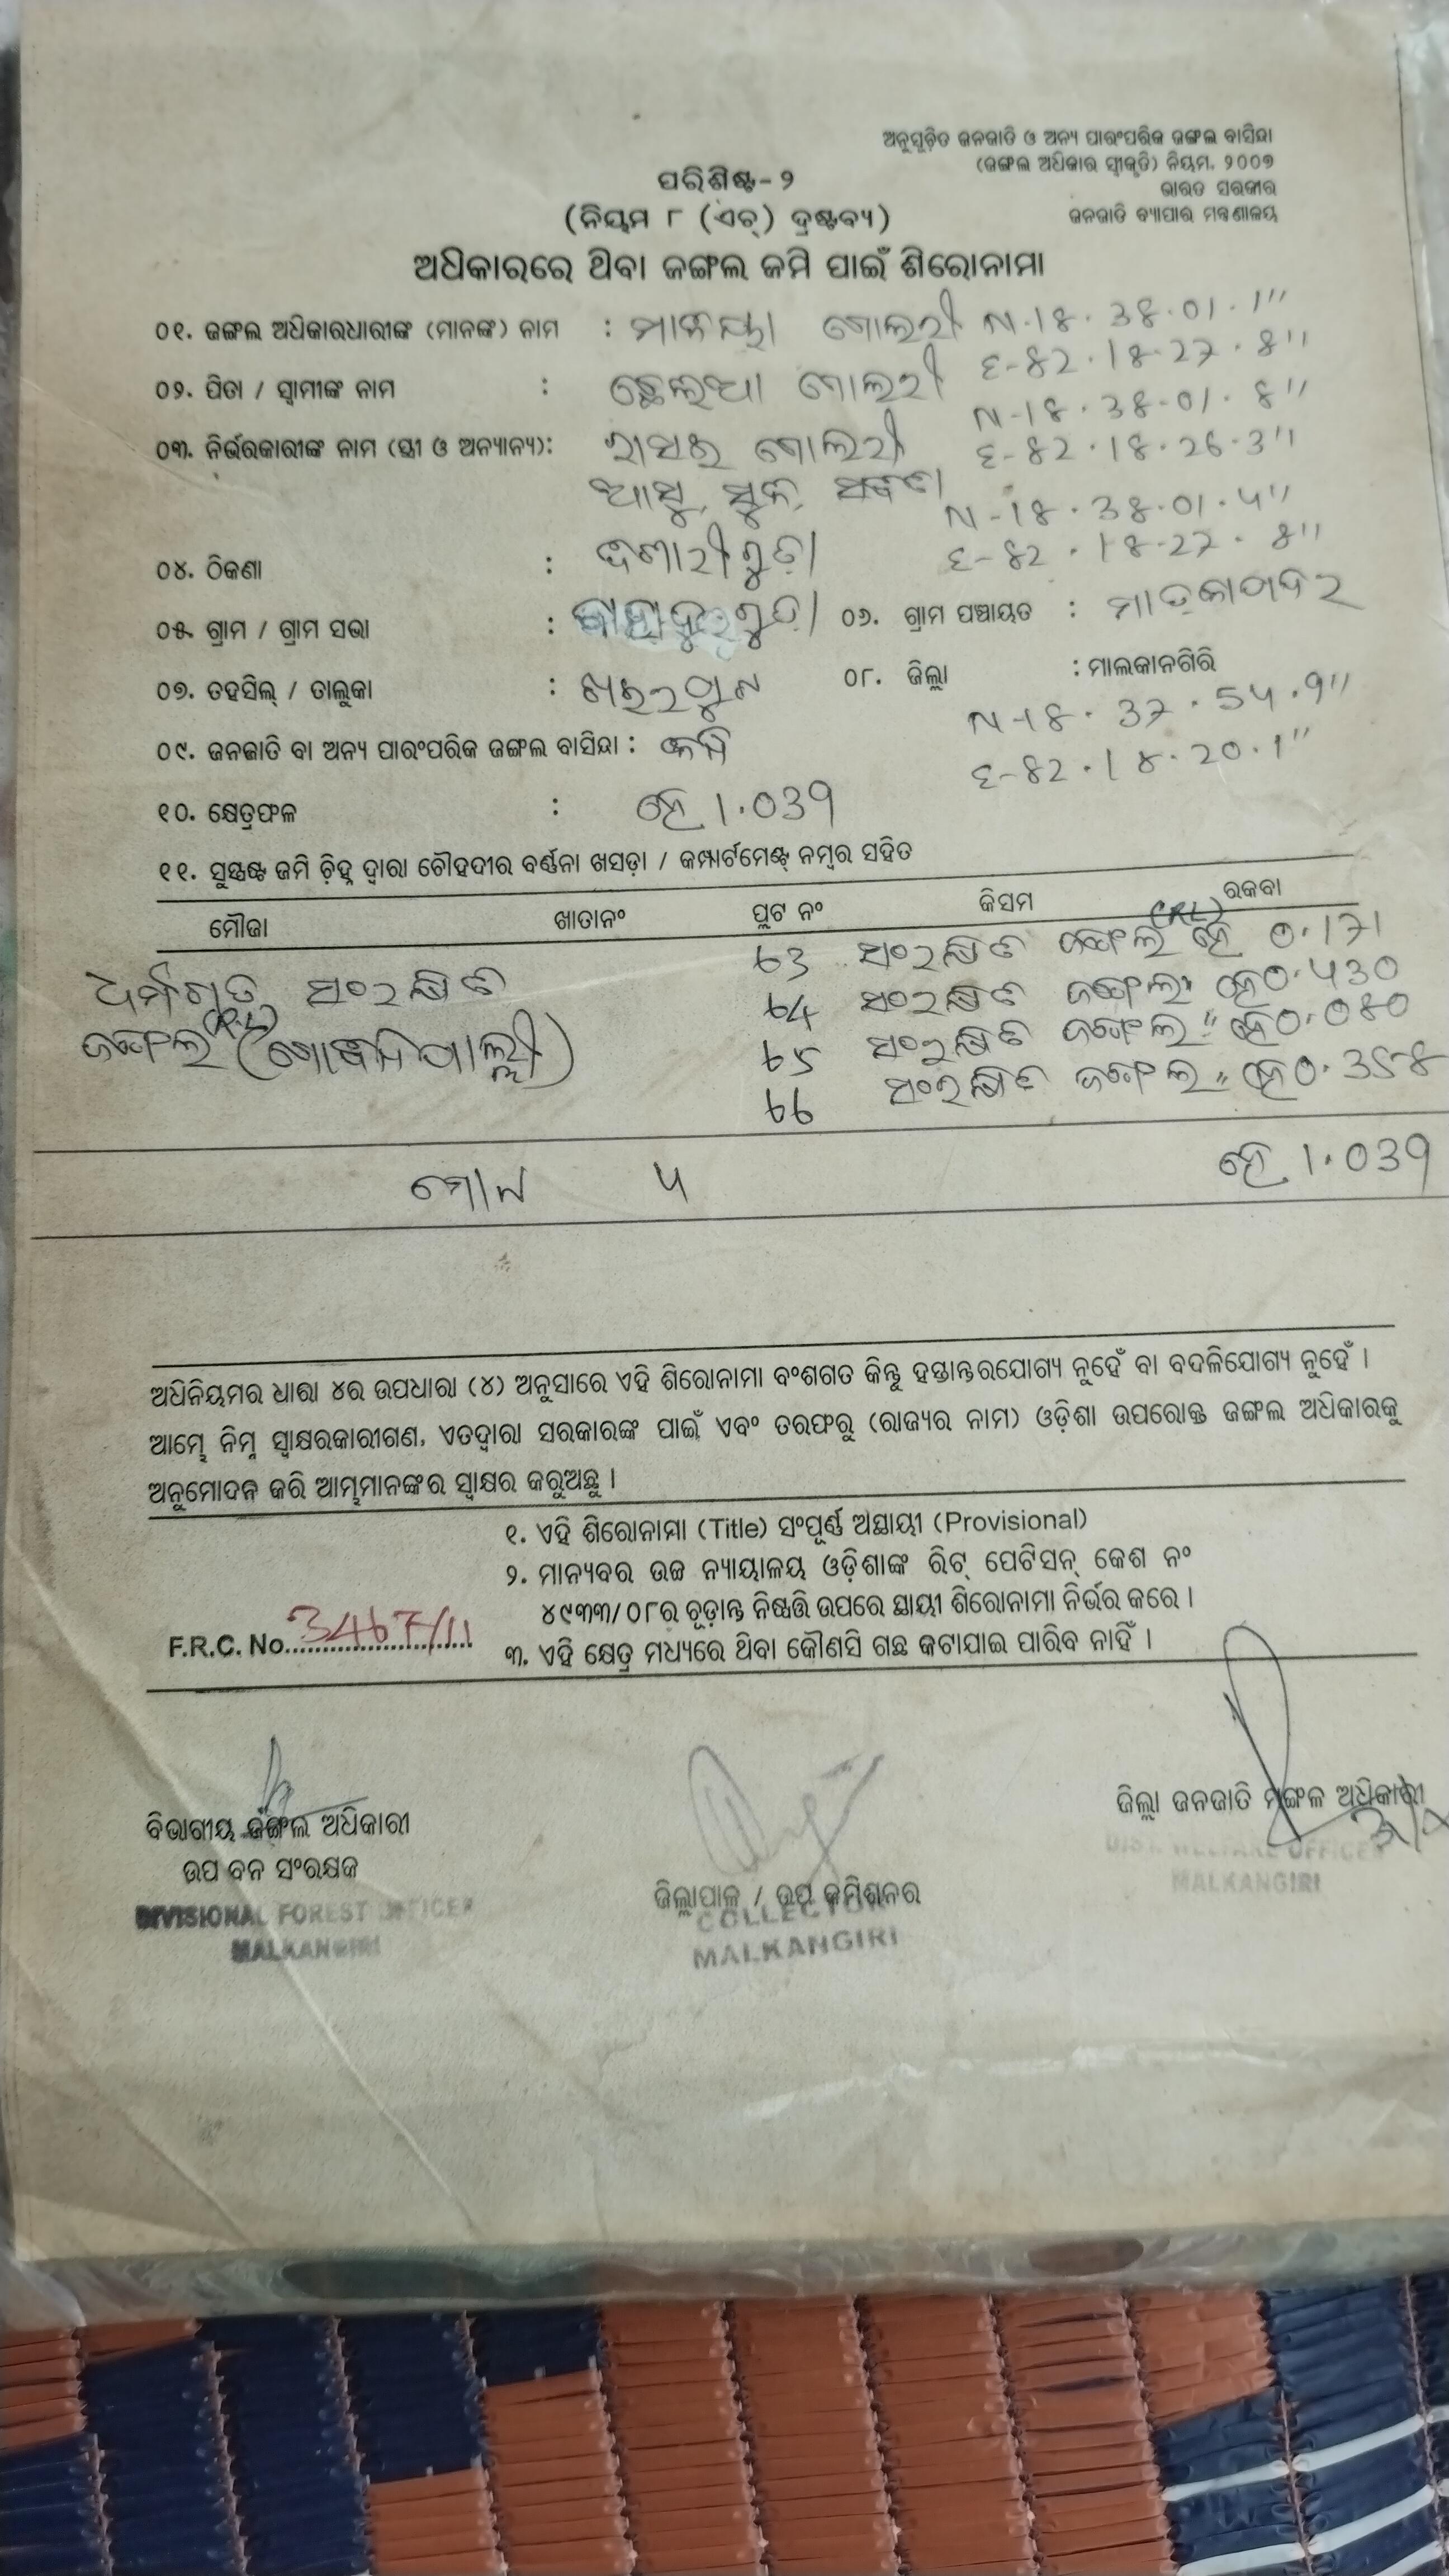 ଅନୁସୂଚିତ ଜନଜାତି ଓ ଅନ୍ୟ ପାରଂପରିକ ଜଙ୍ଗଲ ବାସିନ୍ଦା
(ଜଙ୍ଗଲ ଅଧିକାର ସ୍ୱୀକୃତି) ନିୟମ, ୨୦୦୭
ଭାରତ ସରକାର
ଜନଜାତି ବ୍ୟାପାର ମନ୍ତ୍ରଣାଳୟ
ପରିଶିଷ୍ଟ-୨
(ନିୟମ ୮ (ଏଚ୍) ଦ୍ରଷ୍ଟବ୍ୟ)
ଅଧିକାରରେ ଥିବା ଜଙ୍ଗଲ ଜମି ପାଇଁ ଶିରୋନାମା
୦୧. ଜଙ୍ଗଲ ଅଧିକାରଧାରୀଙ୍କ (ମାନଙ୍କ) ନାମ : ଗୋଲରୀ N-18.38.01.1"
E-82.18.27.8"
୦୨. ପିତା / ସ୍ୱାମୀଙ୍କ ନାମ : ଗୋଲରୀ
N-18.38.01.8"
୦୩. ନିର୍ଭରକାରୀଙ୍କ ନାମ (ସ୍ତ୍ରୀ ଓ ଅନ୍ୟାନ୍ୟ): ଗୋଲରୀ E-82.18.26.3"
N-18.38.01.4"
୦୪. ଠିକଣା : E-82.18.27.8"
୦୫. ଗ୍ରାମ / ଗ୍ରାମ ସଭା : ୦୬. ଗ୍ରାମ ପଞ୍ଚାୟତ :
୦୭. ତହସିଲ୍ / ତାଲୁକା : ଖଇରପୁଟ ୦୮. ଜିଲ୍ଲା : ମାଲକାନଗିରି
N-18.37.54.9"
୦୯. ଜନଜାତି ବା ଅନ୍ୟ ପାରଂପରିକ ଜଙ୍ଗଲ ବାସିନ୍ଦା : E-82.18.20.1"
୧୦. କ୍ଷେତ୍ରଫଳ : ହେ 1.039
୧୧. ସୁସ୍ପଷ୍ଟ ଜମି ଚିହ୍ନ ଦ୍ୱାରା ଚୌହଦୀର ବର୍ଣ୍ଣନା ଖସଡ଼ା / କମ୍ପାର୍ଟମେଣ୍ଟ୍ ନମ୍ବର ସହିତ
ମୌଜା ଖାତାନଂ ପ୍ଲଟ ନଂ କିସମ ରକବା
ସଂରକ୍ଷିତ ଜଙ୍ଗଲ ହେ 0.171
ସଂରକ୍ଷିତ ସଂରକ୍ଷିତ ଜଙ୍ଗଲ " ହେ 0.430
ଜଙ୍ଗଲ ସଂରକ୍ଷିତ ଜଙ୍ଗଲ " ହେ 0.080
ସଂରକ୍ଷିତ ଜଙ୍ଗଲ " ହେ 0.358
ହେ 1.039
ଅଧିନିୟମର ଧାରା ୪ର ଉପଧାରା (୪) ଅନୁସାରେ ଏହି ଶିରୋନାମା ବଂଶଗତ କିନ୍ତୁ ହସ୍ତାନ୍ତରଯୋଗ୍ୟ ନୁହେଁ ବା ବଦଳିଯୋଗ୍ୟ ନୁହେଁ ।
ଆମ୍ଭେ ନିମ୍ନ ସ୍ୱାକ୍ଷରକାରୀଗଣ, ଏତଦ୍ୱାରା ସରକାରଙ୍କ ପାଇଁ ଏବଂ ତରଫରୁ (ରାଜ୍ୟର ନାମ) ଓଡ଼ିଶା ଉପରୋକ୍ତ ଜଙ୍ଗଲ ଅଧିକାରକୁ
ଅନୁମୋଦନ କରି ଆମ୍ଭମାନଙ୍କର ସ୍ୱାକ୍ଷର କରୁଅଛୁ ।
୧. ଏହି ଶିରୋନାମା (Title) ସଂପୂର୍ଣ୍ଣ ଅସ୍ଥାୟୀ (Provisional)
୨. ମାନ୍ୟବର ଉଚ୍ଚ ନ୍ୟାୟାଳୟ ଓଡ଼ିଶାଙ୍କ ରିଟ୍ ପେଟିସନ୍ କେଶ ନଂ
୪୯୩୩/୦୮ର ଚୂଡ଼ାନ୍ତ ନିଷ୍ପତ୍ତି ଉପରେ ସ୍ଥାୟୀ ଶିରୋନାମା ନିର୍ଭର କରେ ।
F.R.C. No. 3467/11
୩. ଏହି କ୍ଷେତ୍ର ମଧ୍ୟରେ ଥିବା କୌଣସି ଗଛ କଟାଯାଇ ପାରିବ ନାହିଁ ।
ବିଭାଗୀୟ ଜଙ୍ଗଲ ଅଧିକାରୀ
ଉପ ବନ ସଂରକ୍ଷକ
DIVISIONAL FOREST OFFICER
MALKANGIRI
ଜିଲ୍ଲାପାଳ / ଉପ କମିଶନର
COLLECTOR
MALKANGIRI
ଜିଲ୍ଲା ଜନଜାତି ମଙ୍ଗଳ ଅଧିକାରୀ
DIST. WELFARE OFFICER
MALKANGIRI